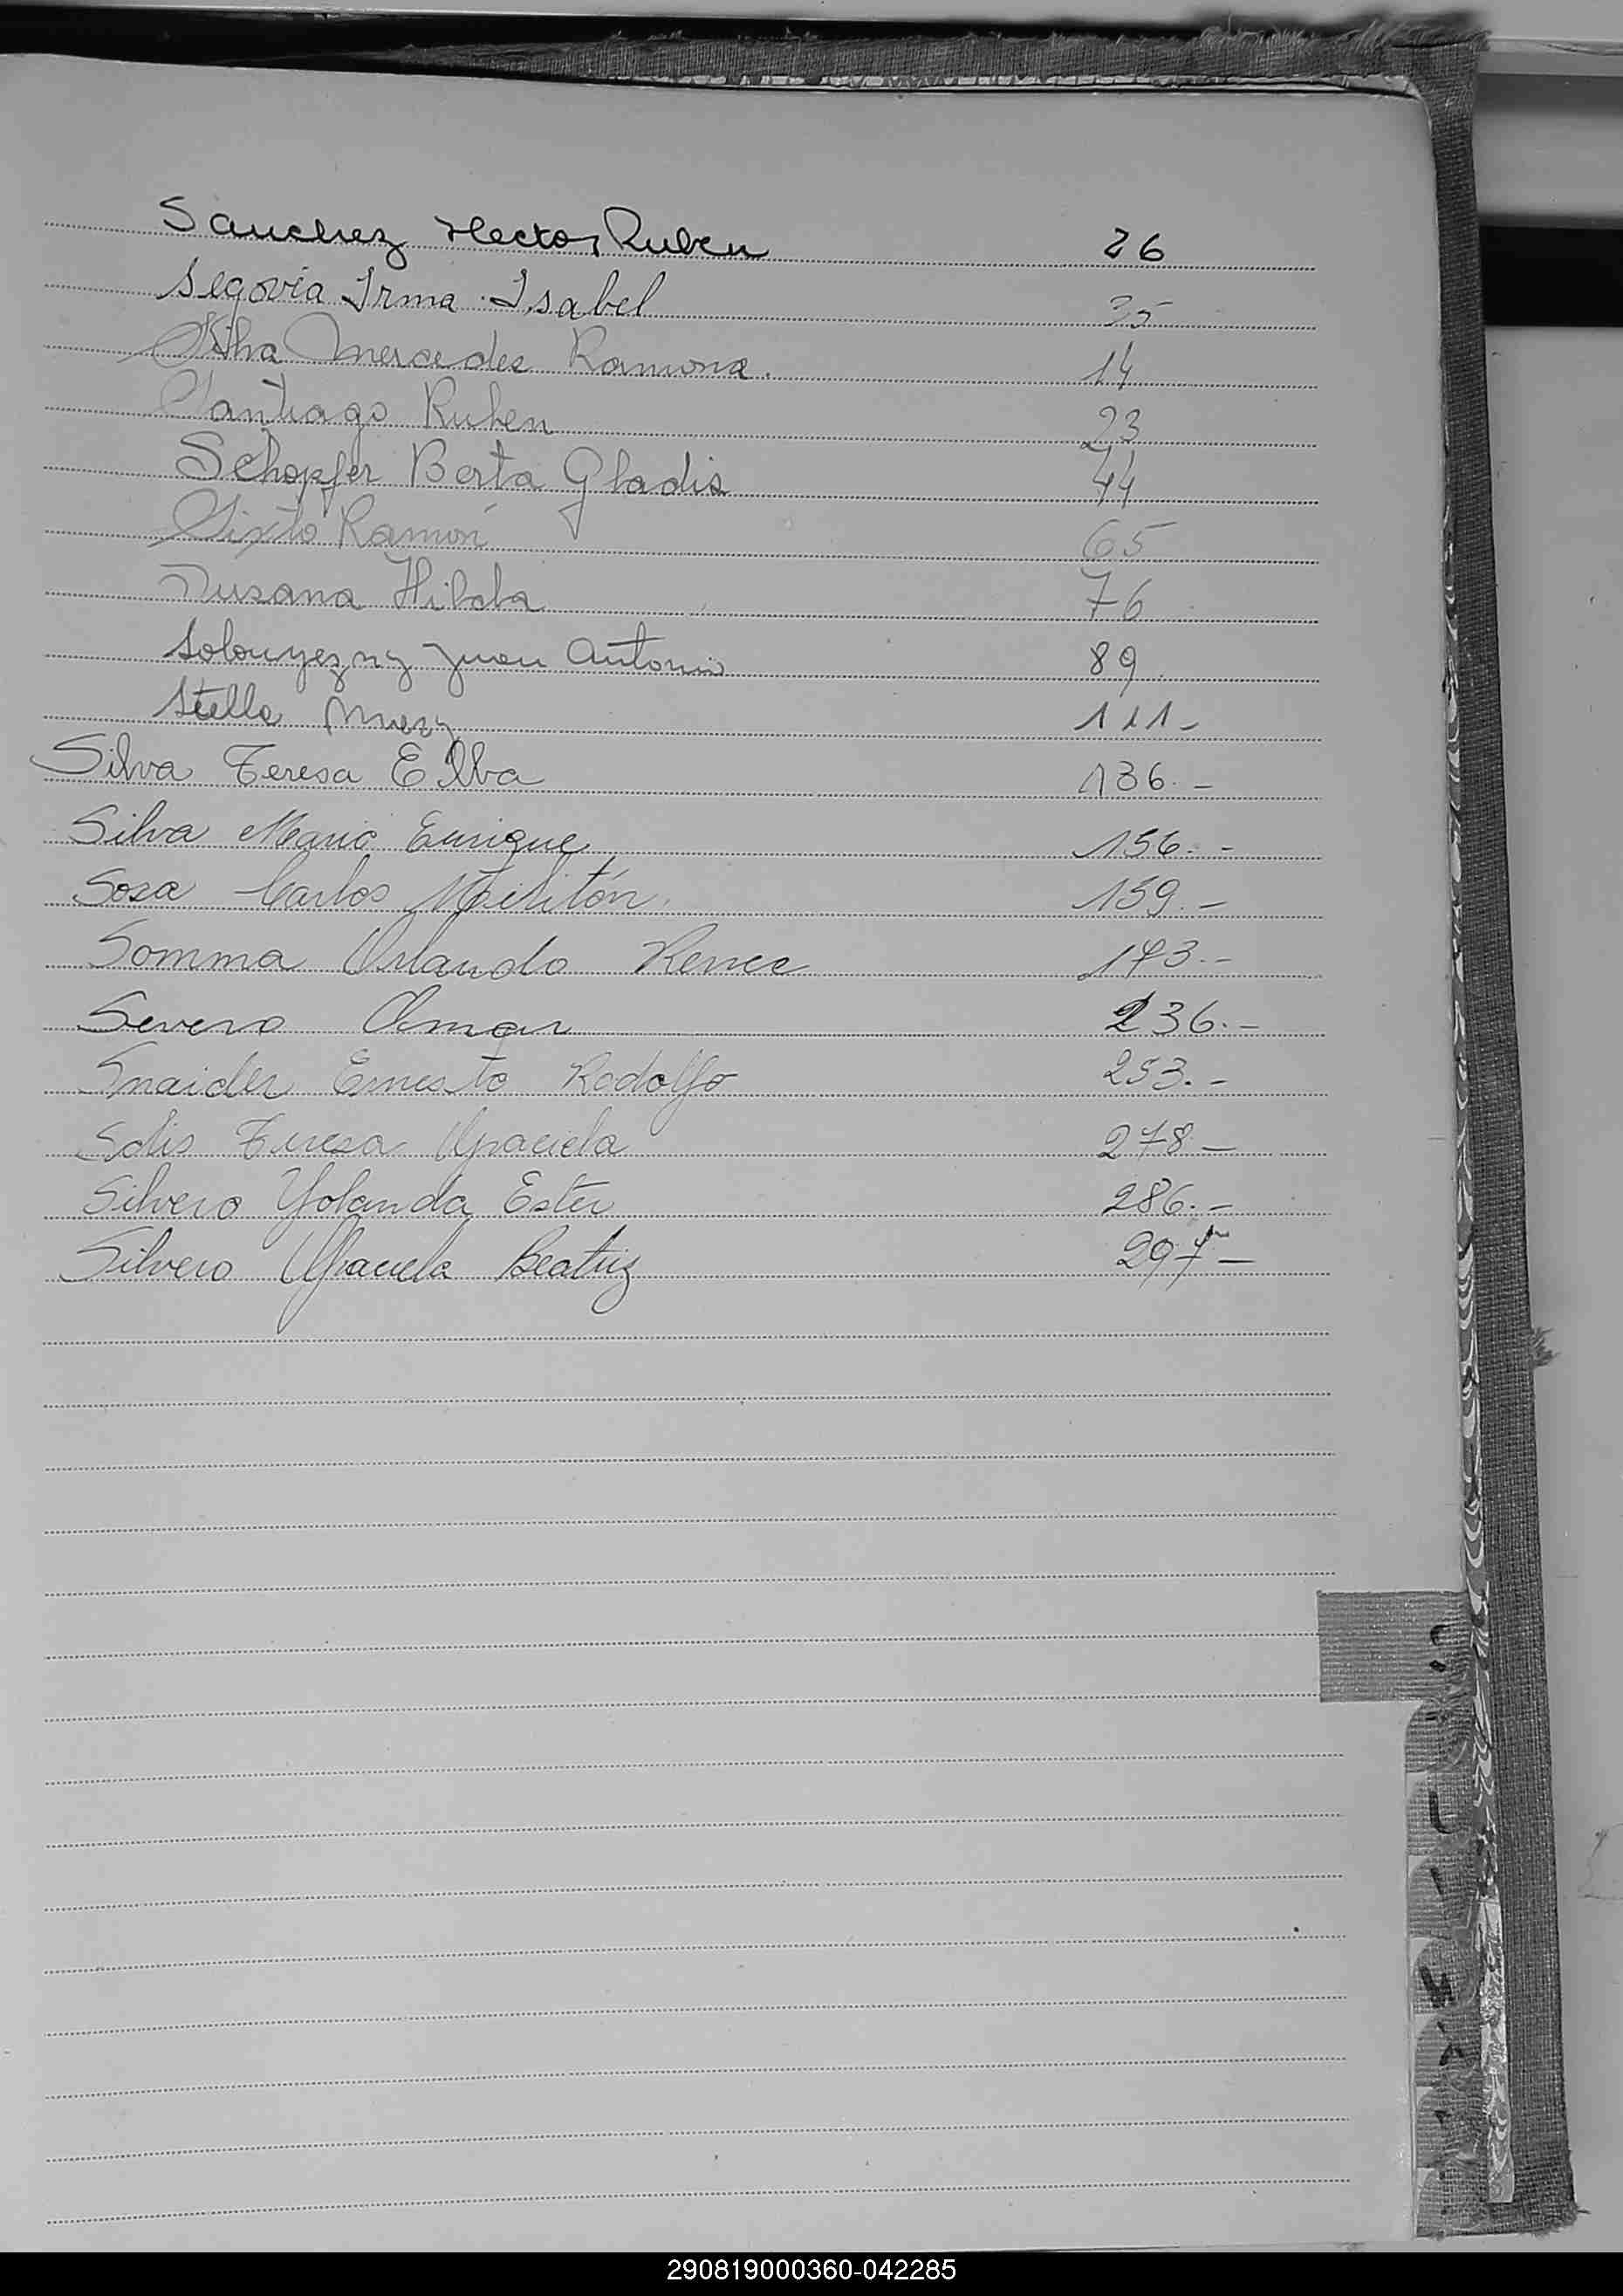 Sanchez Hector Ruben 26
Segovia Irma Isabel 35
Silva Mercedes Ramona. 14
Santiago Ruben 23
Schopfer Berta Gladis 44
Sixto Ramón 65
Susana Hilda 76
Juan Antonio 89
Stella Mary 111-
Silva Teresa Elba 136.-
Silva Mario Enrique 156.-
Sosa Carlos Melitón 159.-
Somma Orlando Renee 173.-
Severo Omar 236.-
Snaider Ernesto Rodolfo 253.-
Solis Teresa Graciela 278-
Silvero Yolanda Ester 286.-
Silvero Graciela Beatriz 297-
290819000360-042285